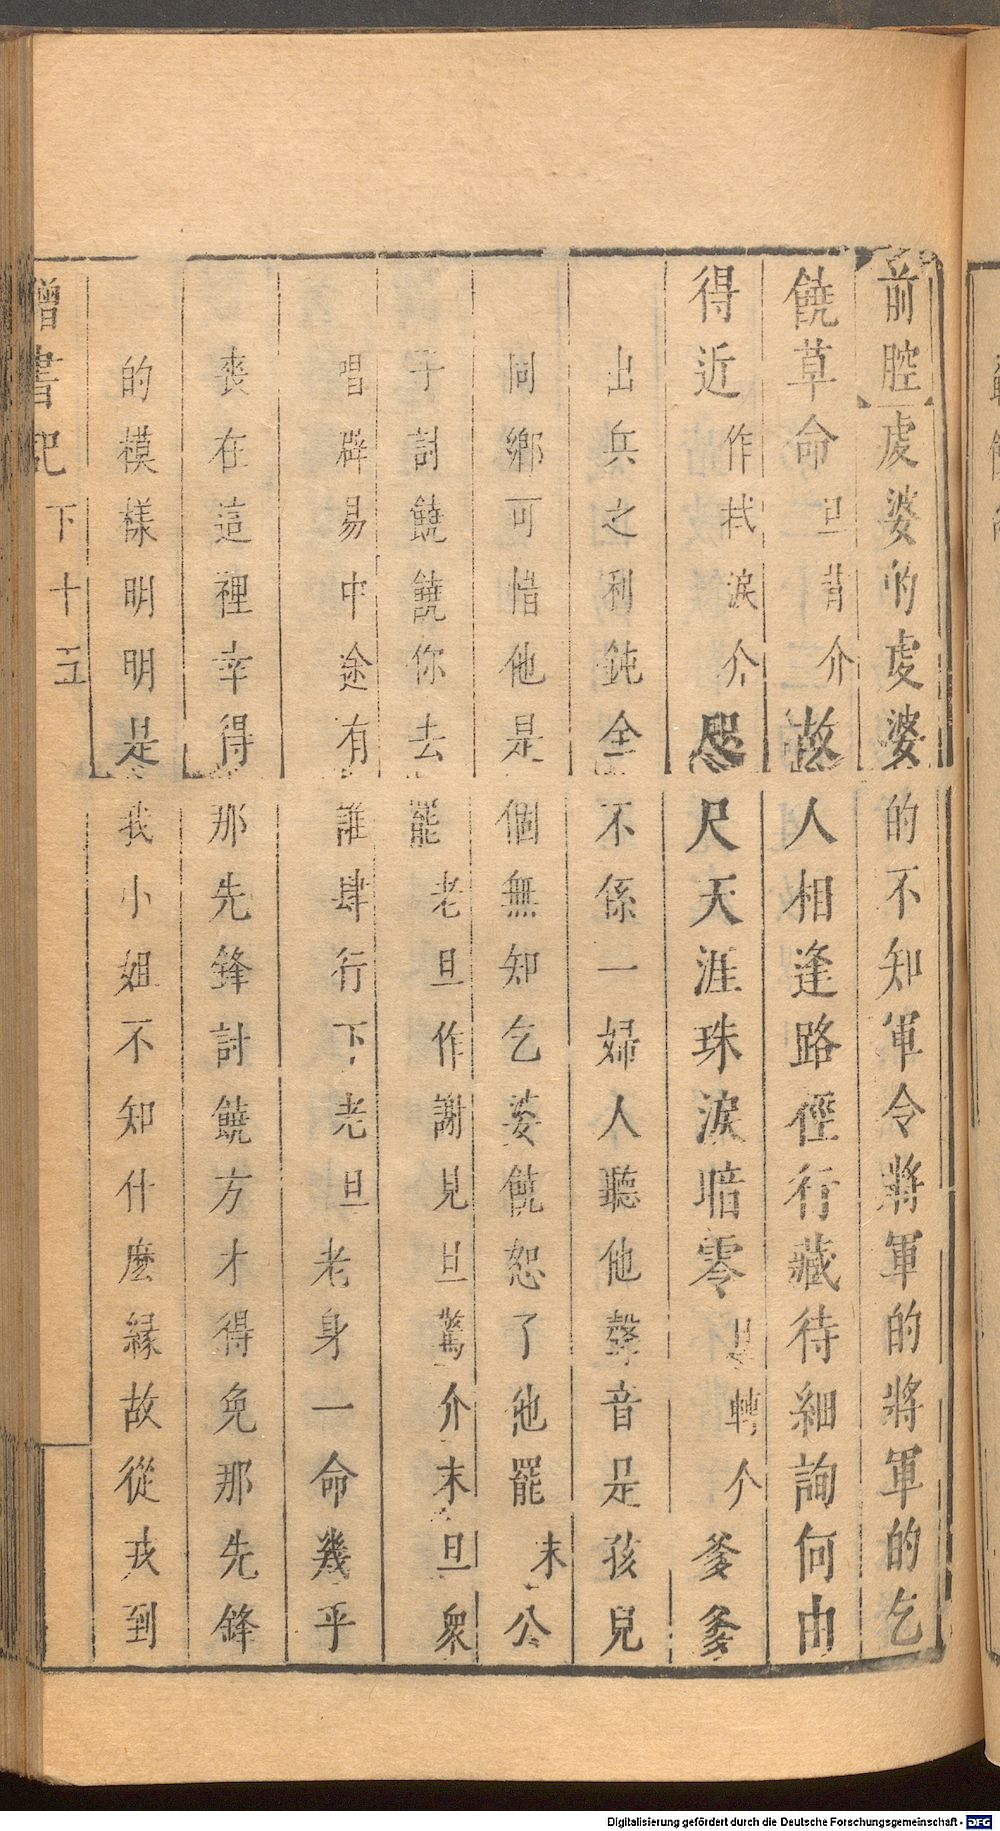 前腔虔婆的虔婆的不知軍令將軍的將軍的乞
饒草命旦背介故人相逢路徑行藏待細詢何由
得近作拭淚介咫尺天涯珠淚暗零旦轉介爹爹
出兵之利鈍全不係一婦人聽他聲音是孩兒
同鄉可惜他是個無知乞婆饒恕了他罷末公
子討饒饒你去罷老旦作謝見旦驚介末旦衆
唱辟易中途有誰肆行下老旦老身一命幾乎
喪在這裡幸得那先鋒討饒方才得免那先鋒
的模樣明明是我小姐不知什麼緣故從戎到
書記 下 十五
Digitalisierung gefördert durch die Deutsche Forschungsgemeinschaft - DFG